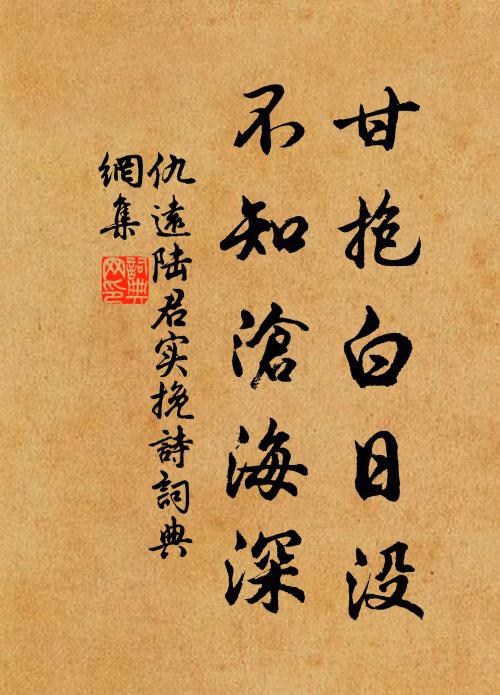 甘抱白日没
不知滄海深
仇遠陆君实挽詩詞典
網集
詞典
网印